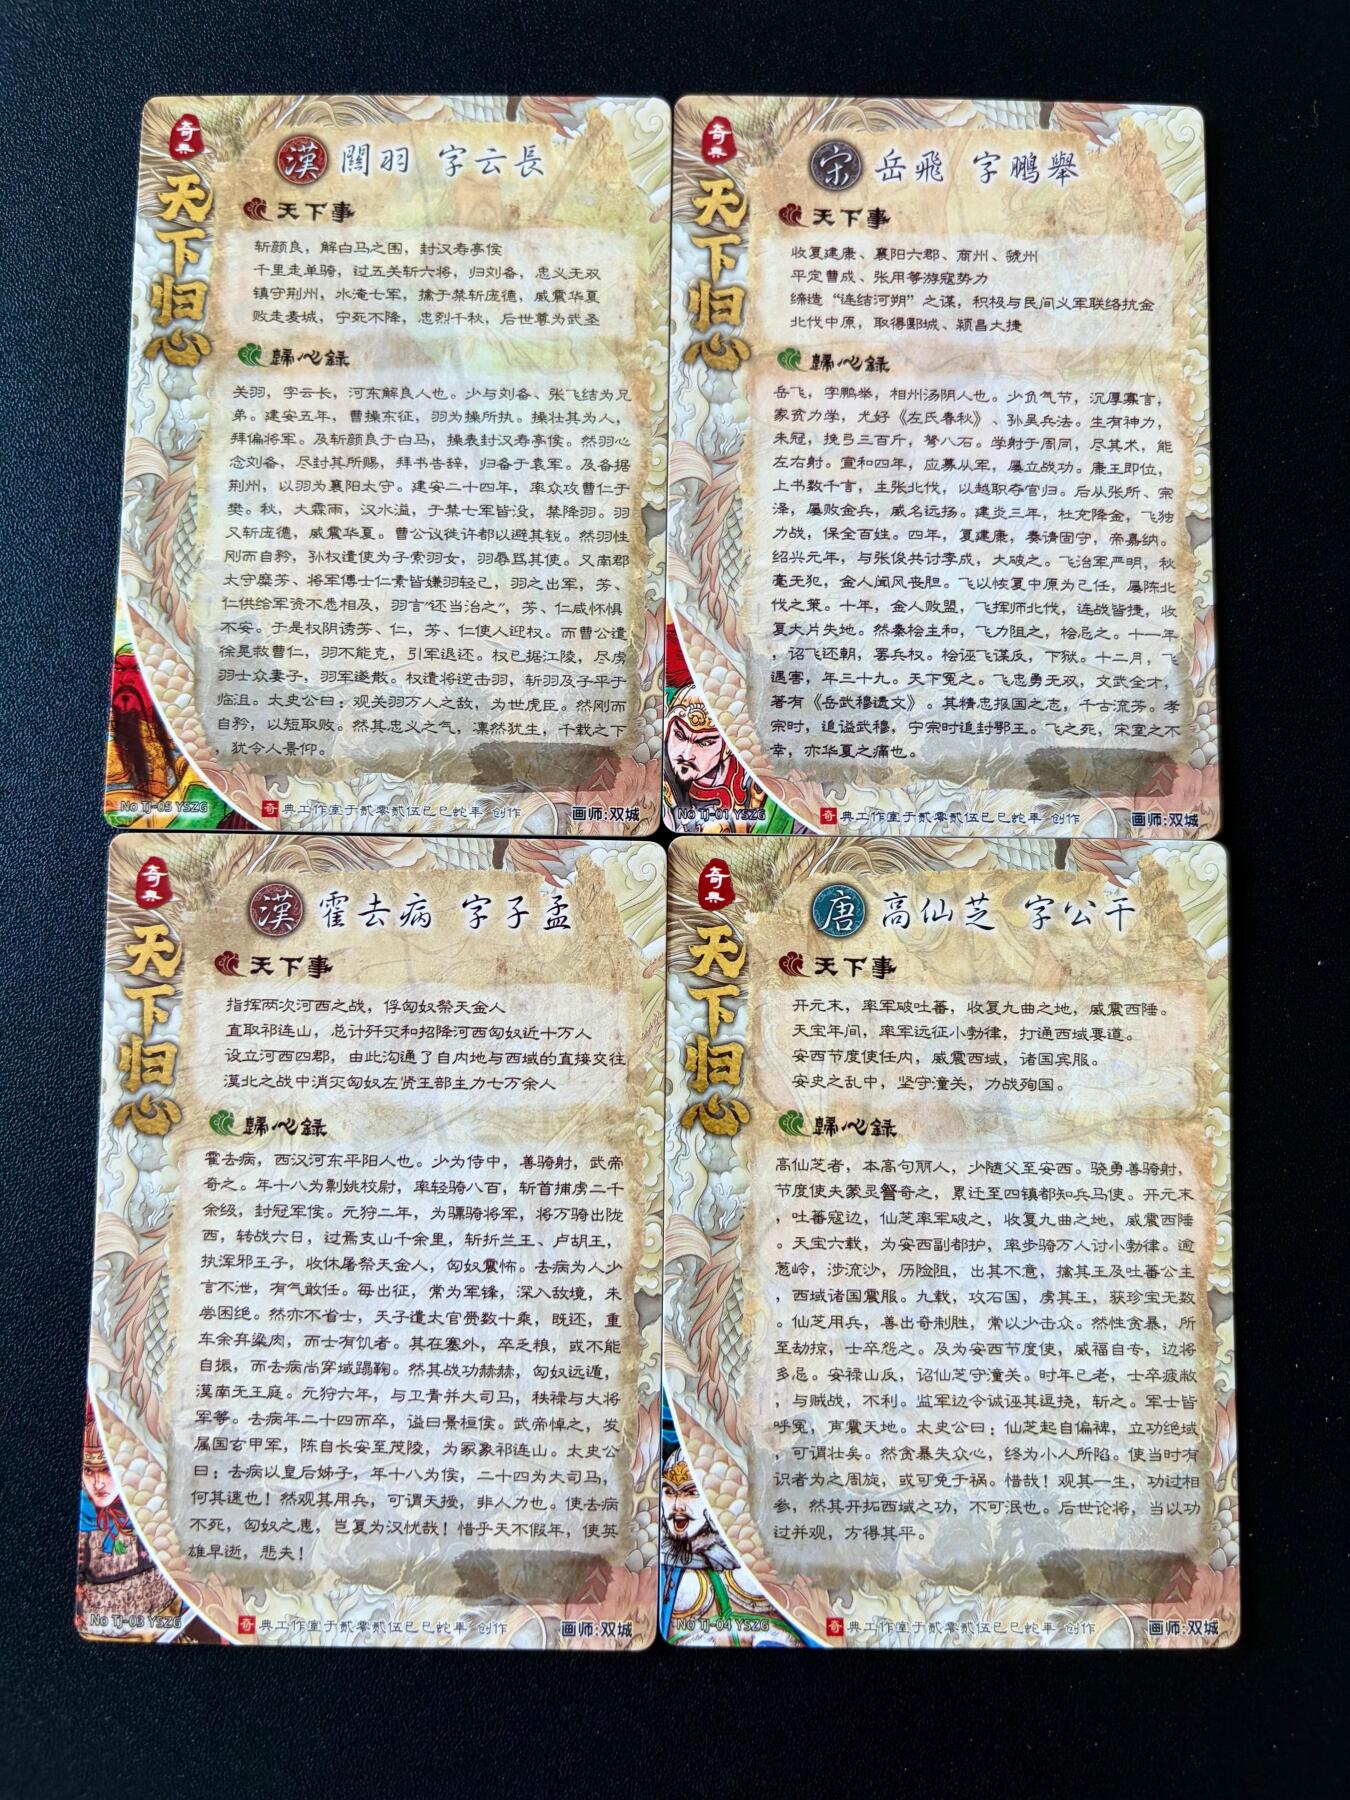 奇典
天下归心
漢 關羽 字云長
天下事
斩颜良，解白马之围，封汉寿亭侯
千里走单骑，过五关斩六将，归刘备，忠义无双
镇守荆州，水淹七军，擒于禁斩庞德，威震华夏
败走麦城，宁死不降，忠烈千秋，后世尊为武圣
歸心録
关羽，字云长，河东解良人也。少与刘备、张飞结为兄
弟。建安五年，曹操东征，羽为操所执。操壮其为人，
拜偏将军。及斩颜良于白马，操表封汉寿亭侯。然羽心
念刘备，尽封其所赐，拜书告辞，归备于袁军。及备据
荆州，以羽为襄阳太守。建安二十四年，率众攻曹仁于
樊。秋，大霖雨，汉水溢，于禁七军皆没，禁降羽。羽
又斩庞德，威震华夏。曹公议徙许都以避其锐。然羽性
刚而自矜，孙权遣使为子索羽女，羽辱骂其使。又南郡
太守糜芳、将军傅士仁素皆嫌羽轻己，羽之出军，芳、
仁供给军资不悉相及，羽言“还当治之”，芳、仁咸怀惧
不安。于是权阴诱芳、仁，芳、仁使人迎权。而曹公遣
徐晃救曹仁，羽不能克，引军退还。权已据江陵，尽虏
羽士众妻子，羽军遂散。权遣将逆击羽，斩羽及子平于
临沮。太史公曰：观关羽万人之敌，为世虎臣。然刚而
自矜，以短取败。然其忠义之气，凛然犹生，千载之下
，犹令人景仰。
No TJ-05 YSZG
奇典工作室于贰零贰伍已巳蛇年 创作
画师:双城
奇典
天下归心
宋 岳飛 字鵬舉
天下事
收复建康、襄阳六郡、商州、虢州
平定曹成、张用等游寇势力
缔造“连结河朔”之谋，积极与民间义军联络抗金
北伐中原，取得郾城、颍昌大捷
歸心録
岳飞，字鹏举，相州汤阴人也。少负气节，沉厚寡言，
家贫力学，尤好《左氏春秋》、孙吴兵法。生有神力，
未冠，挽弓三百斤，弩八石。学射于周同，尽其术，能
左右射。宣和四年，应募从军，屡立战功。康王即位，
上书数千言，主张北伐，以越职夺官归。后从张所、宗
泽，屡败金兵，威名远扬。建炎三年，杜充降金，飞独
力战，保全百姓。四年，复建康，奏请固守，帝嘉纳。
绍兴元年，与张俊共讨李成，大破之。飞治军严明，秋
毫无犯，金人闻风丧胆。飞以恢复中原为己任，屡陈北
伐之策。十年，金人败盟，飞挥师北伐，连战皆捷，收
复大片失地。然秦桧主和，飞力阻之，桧忌之。十一年
，诏飞还朝，罢兵权。桧诬飞谋反，下狱。十二月，飞
遇害，年三十九。天下冤之。飞忠勇无双，文武全才，
著有《岳武穆遗文》。其精忠报国之志，千古流芳。孝
宗时，追谥武穆，宁宗时追封鄂王。飞之死，宋室之不
幸，亦华夏之痛也。
No TJ-01 YSZG
奇典工作室于贰零贰伍已巳蛇年 创作
画师:双城
奇典
天下归心
漢 霍去病 字子孟
天下事
指挥两次河西之战，俘匈奴祭天金人
直取祁连山，总计歼灭和招降河西匈奴近十万人
设立河西四郡，由此沟通了自内地与西域的直接交往
漠北之战中消灭匈奴左贤王部主力七万余人
歸心録
霍去病，西汉河东平阳人也。少为侍中，善骑射，武帝
奇之。年十八为剽姚校尉，率轻骑八百，斩首捕虏二千
余级，封冠军侯。元狩二年，为骠骑将军，将万骑出陇
西，转战六日，过焉支山千余里，斩折兰王、卢胡王，
执浑邪王子，收休屠祭天金人，匈奴震怖。去病为人少
言不泄，有气敢任。每出征，常为军锋，深入敌境，未
尝困绝。然亦不省士，天子遣太官赍数十乘，既还，重
车余弃粱肉，而士有饥者。其在塞外，卒乏粮，或不能
自振，而去病尚穿域蹋鞠。然其战功赫赫，匈奴远遁，
漠南无王庭。元狩六年，与卫青并大司马，秩禄与大将
军等。去病年二十四而卒，谥曰景桓侯。武帝悼之，发
属国玄甲军，陈自长安至茂陵，为冢象祁连山。太史公
曰：去病以皇后姊子，年十八为侯，二十四为大司马，
何其速也！然观其用兵，可谓天授，非人力也。使去病
不死，匈奴之患，岂复为汉忧哉！惜乎天不假年，使英
雄早逝，悲夫！
No TJ-03 YSZG
奇典工作室于贰零贰伍已巳蛇年 创作
画师:双城
奇典
天下归心
唐 高仙芝 字公干
天下事
开元末，率军破吐蕃，收复九曲之地，威震西陲。
天宝年间，率军远征小勃律，打通西域要道。
安西节度使任内，威震西域，诸国宾服。
安史之乱中，坚守潼关，力战殉国。
歸心録
高仙芝者，本高句丽人，少随父至安西。骁勇善骑射，
节度使夫蒙灵詧奇之，累迁至四镇都知兵马使。开元末
，吐蕃寇边，仙芝率军破之，收复九曲之地，威震西陲
。天宝六载，为安西副都护，率步骑万人讨小勃律。逾
葱岭，涉流沙，历险阻，出其不意，擒其王及吐蕃公主
，西域诸国震服。九载，攻石国，虏其王，获珍宝无数
。仙芝用兵，善出奇制胜，常以少击众。然性贪暴，所
至劫掠，士卒怨之。及为安西节度使，威福自专，边将
多忌。安禄山反，诏仙芝守潼关。时年已老，士卒疲敝
，与贼战，不利。监军边令诚诬其逗挠，斩之。军士皆
呼冤，声震天地。太史公曰：仙芝起自偏裨，立功绝域
，可谓壮矣。然贪暴失众心，终为小人所陷。使当时有
识者为之周旋，或可免于祸。惜哉！观其一生，功过相
参，然其开拓西域之功，不可泯也。后世论将，当以功
过并观，方得其平。
No TJ-04 YSZG
奇典工作室于贰零贰伍已巳蛇年 创作
画师:双城